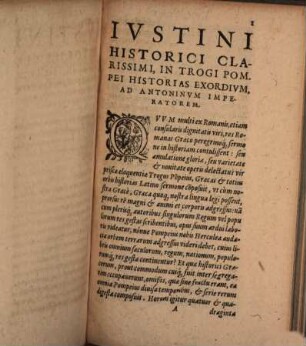 1
IVSTINI
HISTORICI CLA-
RISSIMI, IN TROGI POM-
PEI HISTORIAS EXORDIVM,
AD ANTONINVM IMPE-
RATOREM.
QVVM multi ex Romanis, etiam
consularis dignitatis viri, res Ro-
manas Græco peregrinoq; sermo-
ne in historiam contulissent: seu
æmulatione gloriæ, seu varietate
& nouitate operis delectatus vir
priscæ eloquentiæ Trogus Pōpeius, Græcas & totius
orbis historias Latino sermone cōposuit, vt cùm no-
stra Græcè, Græca quoq; nostra lingua legi possent,
prorsus rē magni & animi et corporis adgressus: nā
cum plerisq; autoribus singulorum Regum vel popu
lorum res gestas scribentibus, opus suum ardui labo-
ris videatur, nonne Pompeius nobis Herculea auda-
cia orbem terrarum adgressus videri debet, cuius li-
bris omnium sæculorum, regum, nationum, populo-
rumq; res gestæ continentur? Et quæ historici Græ-
corum, prout commodum cuiq; fuit inter segrega-
tim occupauerunt, omissis, quæ sine fructu erant, ea
omnia Pompeius diuisa temporibus, & serie rerum
digesta composuit. Horum igitur quatuor & qua-
A draginta